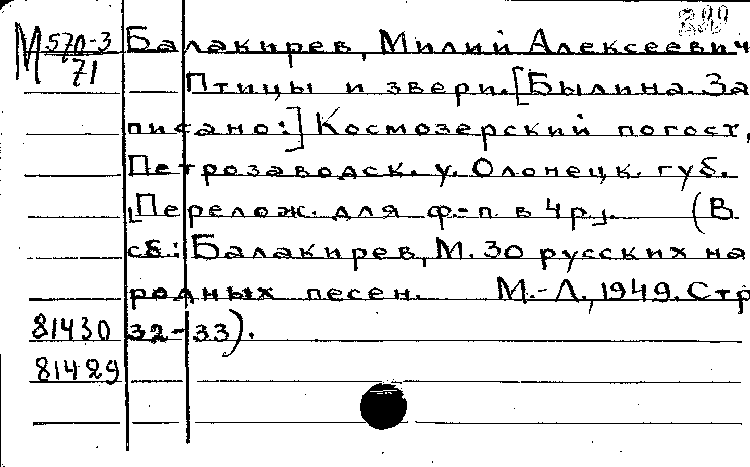 М 570-3/71 Балакирев, Милий Алексеевич
Птицы и звери. [Былина. За
писано:] Космозерский погост,
Петрозаводск. у. Олонецк. губ.
[Перелож. для ф.-п. в 4 р.]. (В
сб.: Балакирев, М. 30 русских на
родных песен. М.-Л., 1949. Стр
81430 32-33).
81429